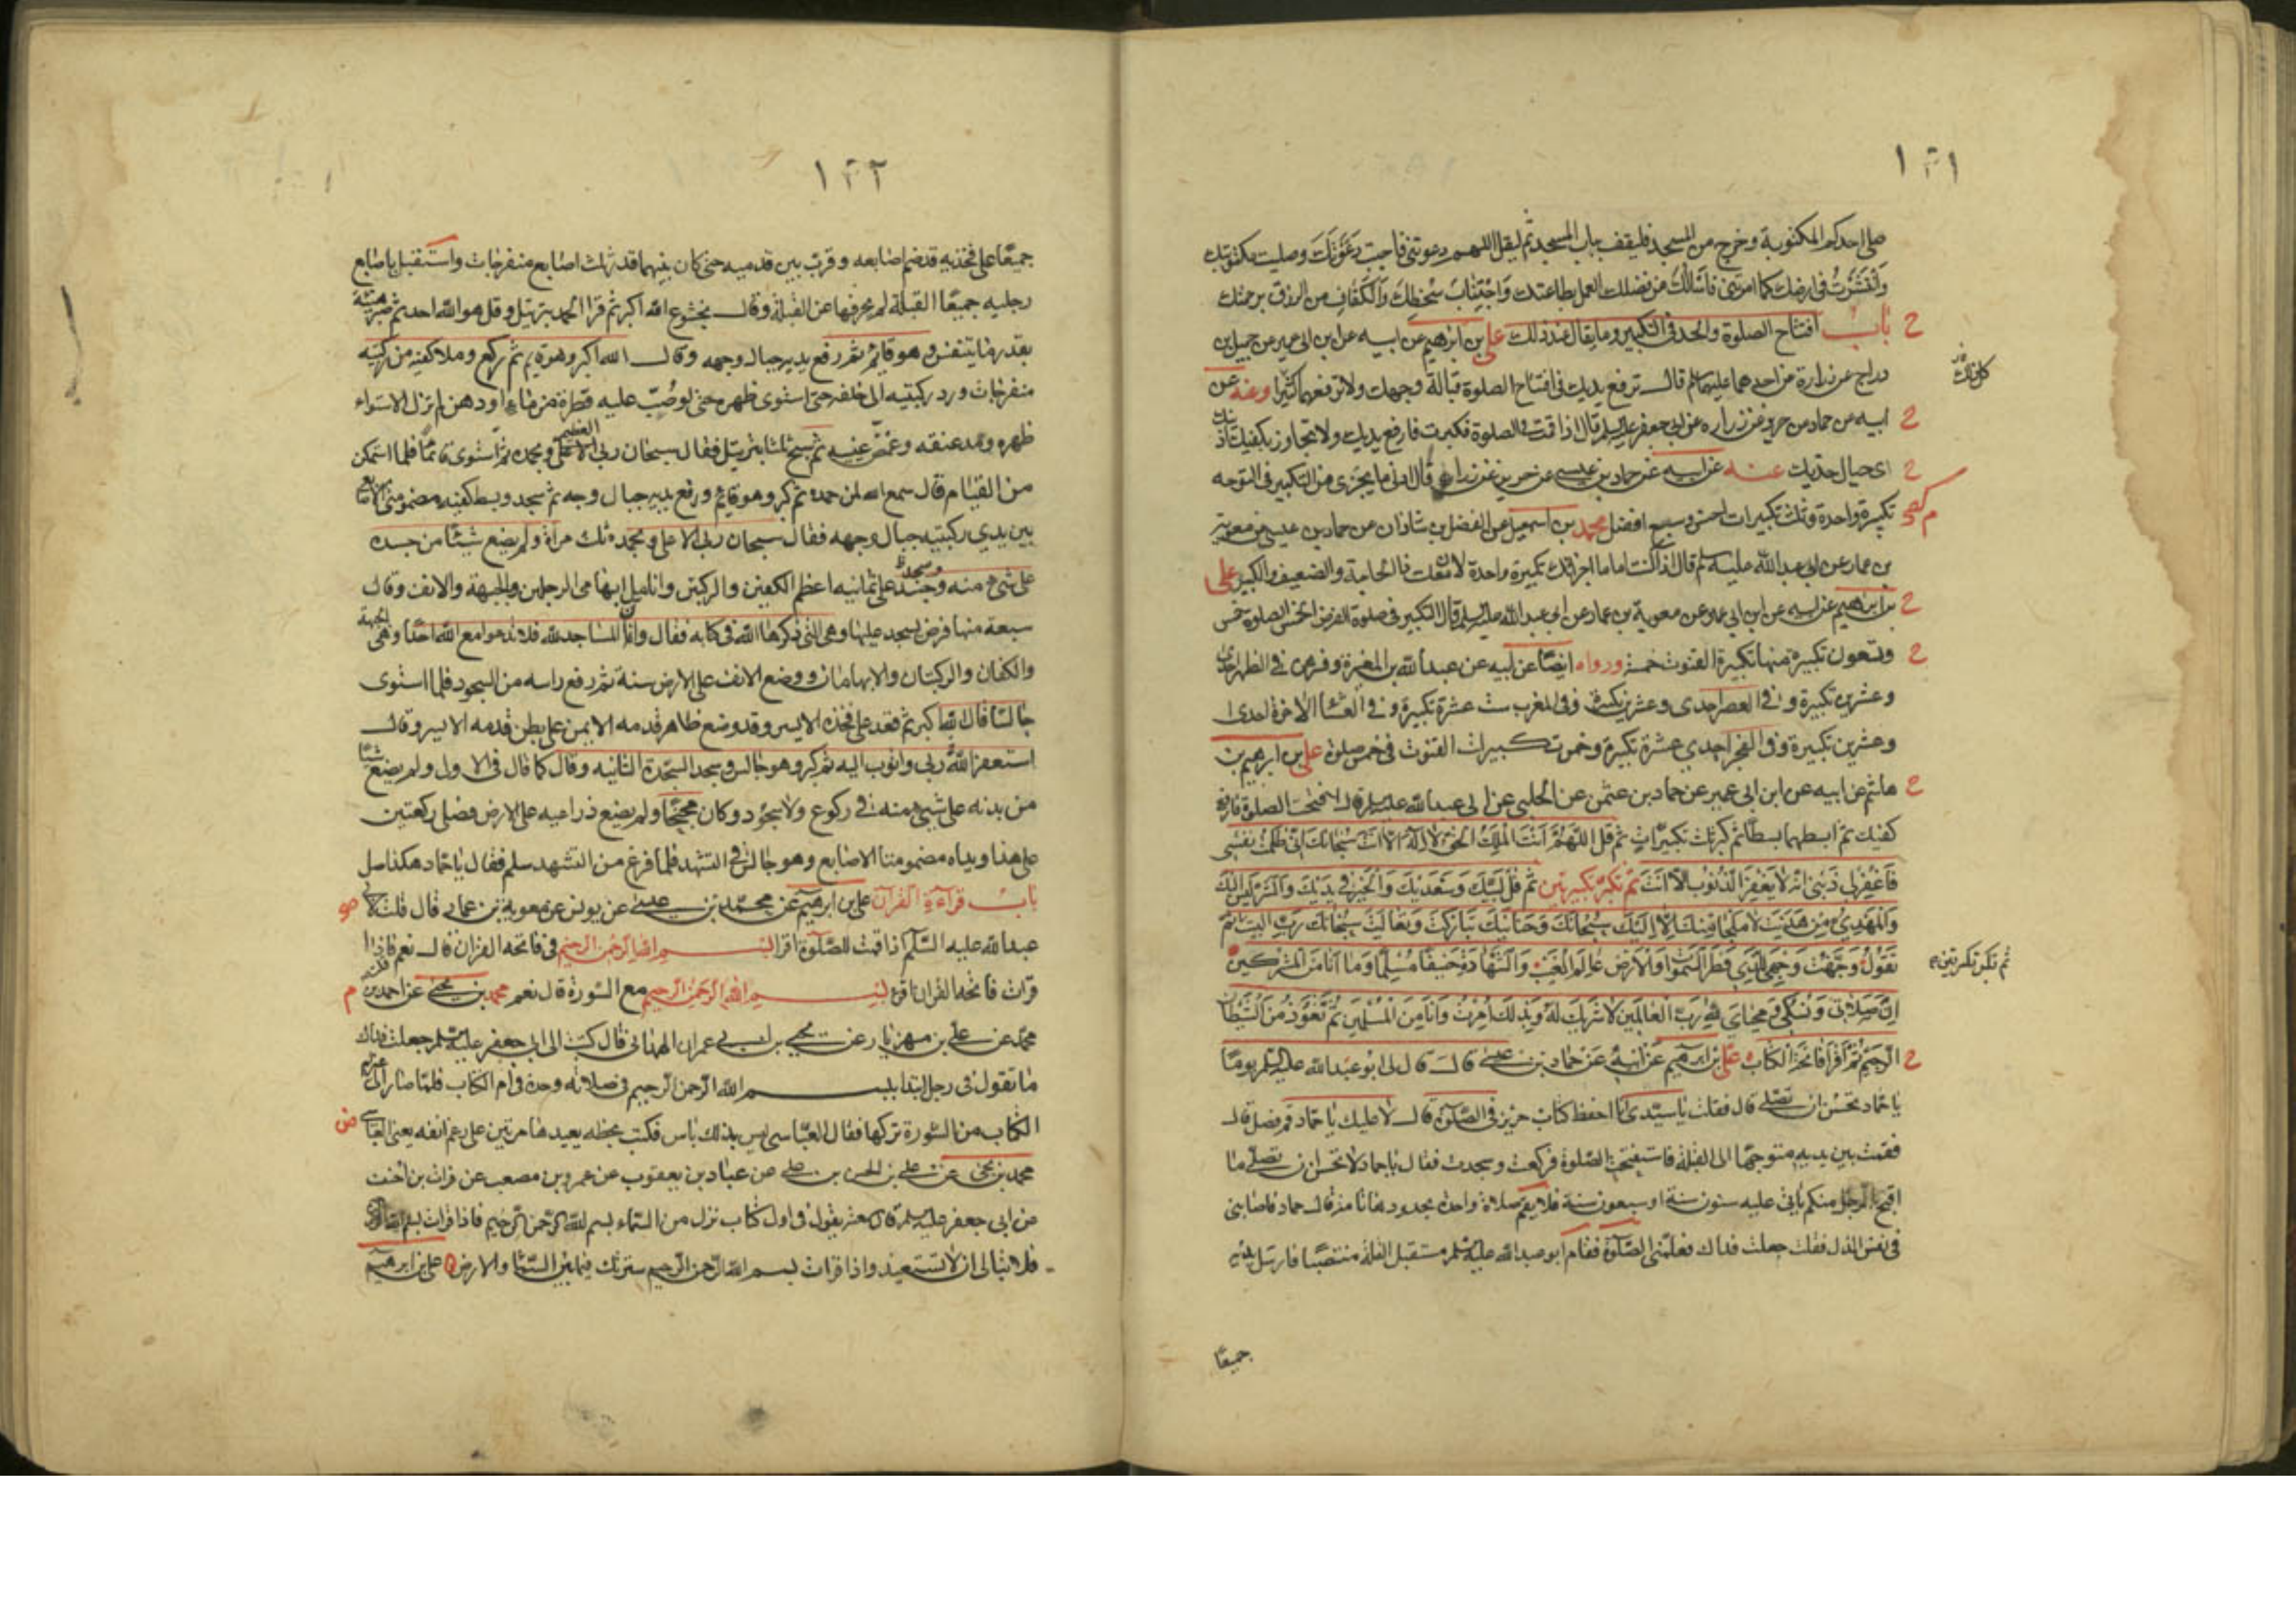 ١٣١
صلى احدكم المكتوبة وخرج من المسجد فليقف بباب المسجد ثم ليقل اللهم دعوتنى فاجبت دعوتك وصليت مكتوبتك
وانتشرت فى ارضك كما امرتنى فاسألك من فضلك العمل بطاعتك واجتناب سخطك والكفاف من الرزق برحمتك
باب افتتاح الصلوة والحد فى التكبير وما يقال عند ذلك على بن ابرهيم عن ابيه عن ابن ابى عمير عن جميل بن
دراج عن زرارة عن احدهما عليهما لم قال ترفع يديك فى افتتاح الصلوة قبالة وجهك ولا ترفعهما كثيرا وعنه عن
ابيه عن حماد عن حريز عن زراره عن ابى جعفر عليه السلم قال اذا قمت فى الصلوة فكبرت فارفع يديك ولا تجاوز بكفيك اذنيك
اى حيال خديك عنه عن ابيه عن حماد بن عيسى عن حريز عن زرارة قال ادنى ما يجزى من التكبير فى التوجه
تكبيرة واحدة وثلث تكبيرات احسن وسبع افضل محمد بن اسمعيل عن الفضل بن شاذان عن حماد بن عيسى عن معوية
بن عمار عن ابى عبد الله عليه سلم قال اذا كنت اماما اجزأتك تكبيرة واحدة لان معك ذا الحاجة والضعيف والكبير على
بن ابرهيم عن ابيه عن ابن ابى عمير عن معوية بن عمار عن ابى عبد الله عليه السلم قال التكبير فى صلوة الفرض الخمس الصلوة خمس
وتسعون تكبيرة منها تكبيرة القنوت خمسة ورواه ايضا عن ابيه عن عبد الله بن المغيرة وفسرهن فى الظهر احدى
وعشرين تكبيرة وفى العصر احدى وعشرين تكبيرة وفى المغرب ست عشرة تكبيرة وفى العشاء الاخرة احدى
وعشرين تكبيرة وفى الفجر احدى عشرة تكبيرة وخمس تكبيرات القنوت فى خمس صلوة على بن ابرهيم بن
هاشم عن ابيه عن ابن ابى عمير عن حماد بن عثمن عن الحلبى عن ابى عبد الله عليه سلم قال اذا افتتحت الصلوة فارفع
كفيك ثم ابسطهما بسطا ثم كبر ثلث تكبيرات ثم قل اللهم انت الملك الحق لا اله الا انت سبحانك انى ظلمت نفسى
فاغفر لى ذنبى انه لا يغفر الذنوب الا انت ثم تكبر تكبيرتين ثم قل لبيك وسعديك والخير فى يديك والشر ليس اليك
والمهدى من هديت لا ملجأ منك الا اليك سبحانك وحنانيك تباركت وتعاليت سبحانك رب البيت ثم
تقول وجهت وجهى للذى فطر السموات والارض عالم الغيب والشهادة حنيفا مسلما وما انا من المشركين
ان صلاتى ونسكى ومحياى لله رب العالمين لا شريك له وبذلك امرت وانا من المسلمين ثم تعوذ من الشيطان
الرجيم ثم اقرأ فاتحة الكتاب على بن ابرهيم عن ابيه عن حماد بن عيسى قال قال لى ابو عبد الله عليه السلم يوما
يا حماد تحسن ان تصلى قال فقلت يا سيدى انا احفظ كتاب حريز فى الصلوة قال لا عليك يا حماد قم فصل قال
فقمت بين يديه متوجها الى القبلة فاستفتحت الصلوة فركعت وسجدت فقال يا حماد لا تحسن ان تصلى ما
اقبح بالرجل منكم يأتى عليه ستون سنة او سبعون سنة فلا يقيم صلاة واحدة بحدودها تامة قال حماد فاصابنى
فى نفسى الذل فقلت جعلت فداك فعلمنى الصلوة فقام ابو عبد الله عليه سلم مستقبل القبلة منتصبا فارسل يديه
ثم تكبر تكبرتين
جميعا
١٣٢
جميعا على فخذيه قد ضم اصابعه وقرب بين قدميه حتى كان بينهما قدر ثلث اصابع منفرجات واستقبل باصابع
رجليه جميعا القبلة لم يحرفها عن القبلة وقال بخشوع الله اكبر ثم قرأ الحمد بترتيل وقل هو الله احد ثم صبر هنيئة
بقدر ما يتنفس وهو قائم ثم رفع يديه حيال وجهه وقال الله اكبر وهو قايم ثم ركع وملا كفيه من ركبتيه
منفرجات ورد ركبتيه الى خلفه حتى استوى ظهره حتى لو صب عليه قطرة من ماء او دهن لم تزل لاستواء
ظهره ومد عنقه وغمض عينيه ثم سبح ثلثا بترتيل فقال سبحان ربى العظيم وبحمده ثم استوى قائما فلما استمكن
من القيام قال سمع الله لمن حمده ثم كبر وهو قايم ورفع يديه حيال وجهه ثم سجد وبسط كفيه مضمومتى الاصابع
بين يدى ركبتيه حيال وجهه فقال سبحان ربى الاعلى وبحمده ثلث مرات ولم يضع شيئا من جسده
على شئ منه وسجد على ثمانية اعظم الكفين والركبتين وانامل ابهامى الرجلين والجبهة والانف وقال
سبعة منها فرض يسجد عليها وهى التى ذكرها الله فى كتابه فقال وان المساجد لله فلا تدعوا مع الله احدا وهى الجبهة
والكفان والركبتان والابهامان ووضع الانف على الارض سنة ثم رفع راسه من السجود فلما استوى
جالسا قال الله اكبر ثم قعد على فخذه الايسر وقد وضع ظاهر قدمه الايمن على بطن قدمه الايسر وقال
استغفر الله ربى واتوب اليه ثم كبر وهو جالس وسجد السجدة الثانيه وقال كما قال فى الاول ولم يضع شيئا
من بدنه على شئ منه فى ركوع ولا سجود وكان مجنحا ولم يضع ذراعيه على الارض فصلى ركعتين
على هذا ويداه مضمومتا الاصابع وهو جالس فى التشهد فلما فرغ من التشهد سلم فقال يا حماد هكذا صل
باب قراءة القرآن على بن ابرهيم عن محمد بن عيسى عن يونس عن معوية بن عمار قال قلت لابى
عبد الله عليه السلم اذا قمت للصلوة اقرأ بسم الله الرحمن الرحيم فى فاتحة القران قال نعم فاذا
قرأت فاتحة القران اقرء بسم الله الرحمن الرحيم مع السورة قال نعم محمد بن يحيى عن احمد بن
محمد عن على بن مهزيار عن يحيى بن ابى عمران الهمدانى قال كتبت الى ابى جعفر عليه سلم جعلت فداك
ما تقول فى رجل ابتدا ببسم الله الرحمن الرحيم فى صلاته وحده فى ام الكتاب فلما صار الى غير ام
الكتاب من السورة تركها فقال العباسى ليس بذلك باس فكتب بخطه يعيدها مرتين على رغم انفه يعنى العباسى
محمد بن يحيى عن على بن الحسن بن على عن عباد بن يعقوب عن عمرو بن مصعب عن فرات بن اخنف
عن ابى جعفر عليه سلم قال سمعته يقول فى اول كتاب نزل من السماء بسم الله الرحمن الرحيم فاذا قرات بسم الله
فلا تبالى ان لا تستعيذ واذا قرات بسم الله الرحمن الرحيم سترتك فيما بين السماء والارض على بن ابرهيم